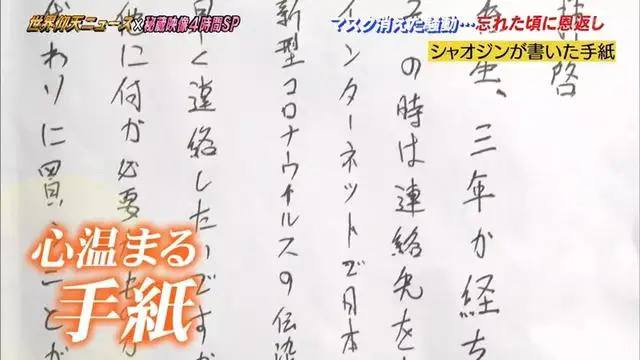 世界仰天ニュース×秘蔵映像4時間SP
マスク消えた騒動…忘れた頃に恩返し
シャオジンが書いた手紙
拝啓
生、三年が経ち
の時は連絡先を
インターネットで日本
新型コロナウイルスの伝染
早く連絡したいですが
に何が必要
わりに買 ことが
心温まる
手紙